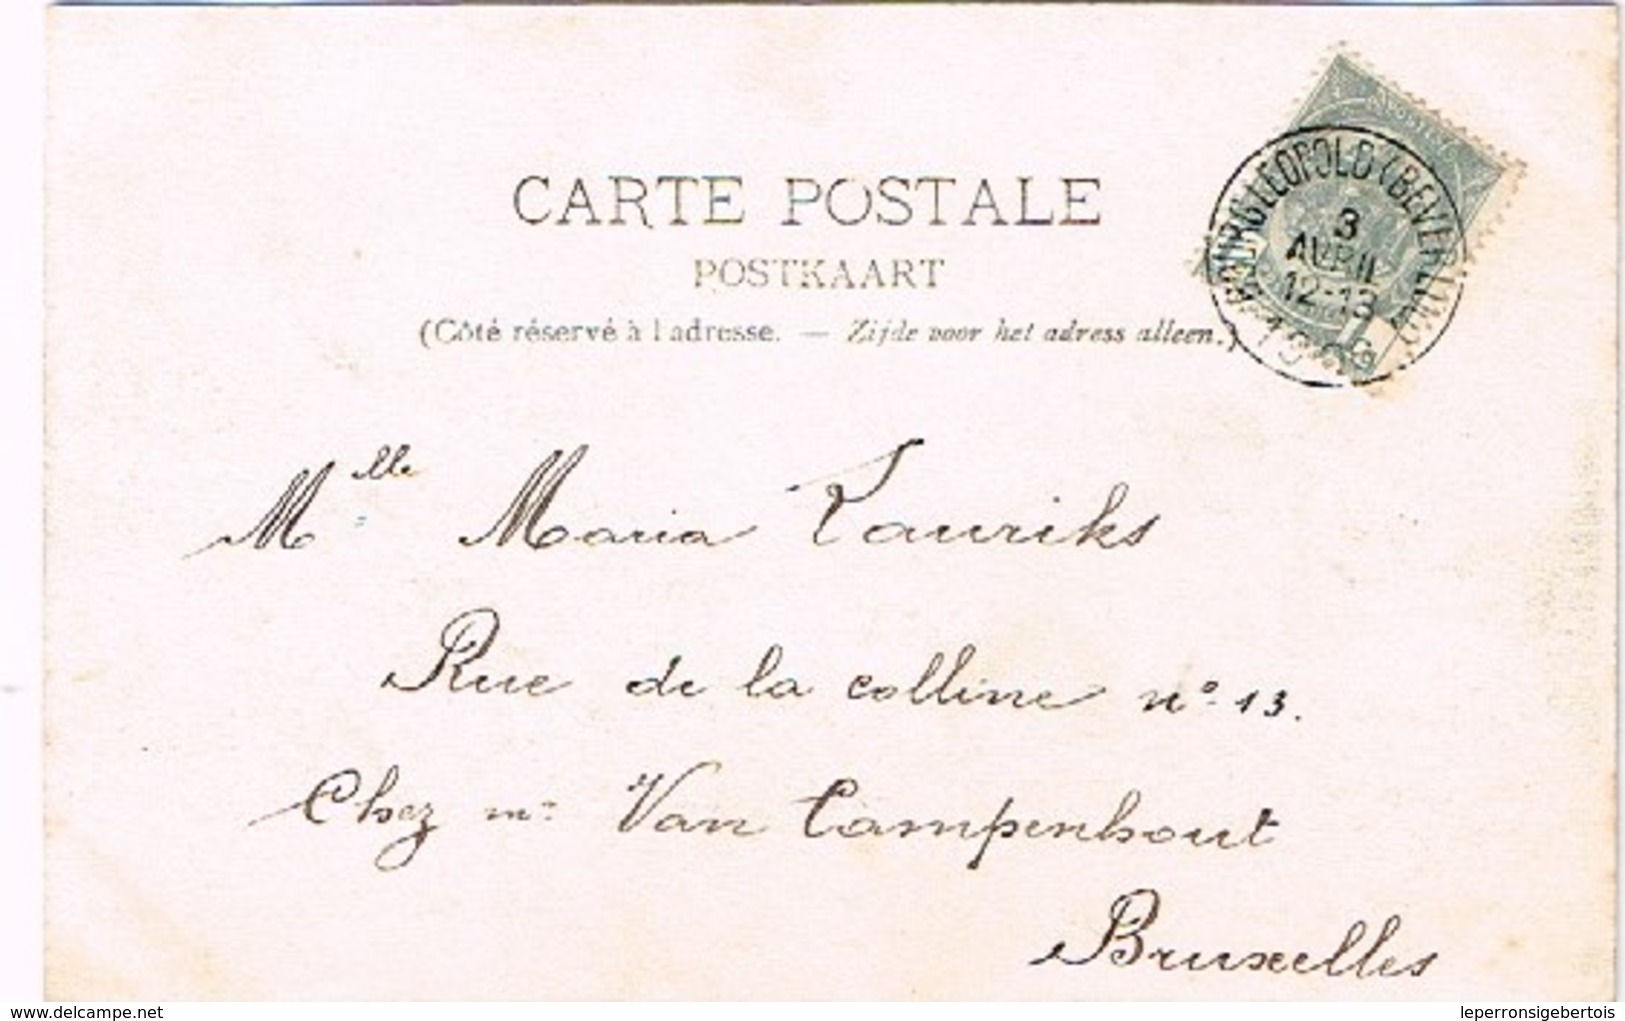 CARTE POSTALE
POSTKAART
(Côté réservé à l'adresse. — Zijde voor het adress alleen.)
BOURG-LEOPOLD (BEVERLOO)
3
AVRIL
12-13
1906
POSTES
Mlle Maria Lauriks
Rue de la colline no 13.
Chez mr Van Campenhout
Bruxelles
delcampe.net
leperronsigebertois